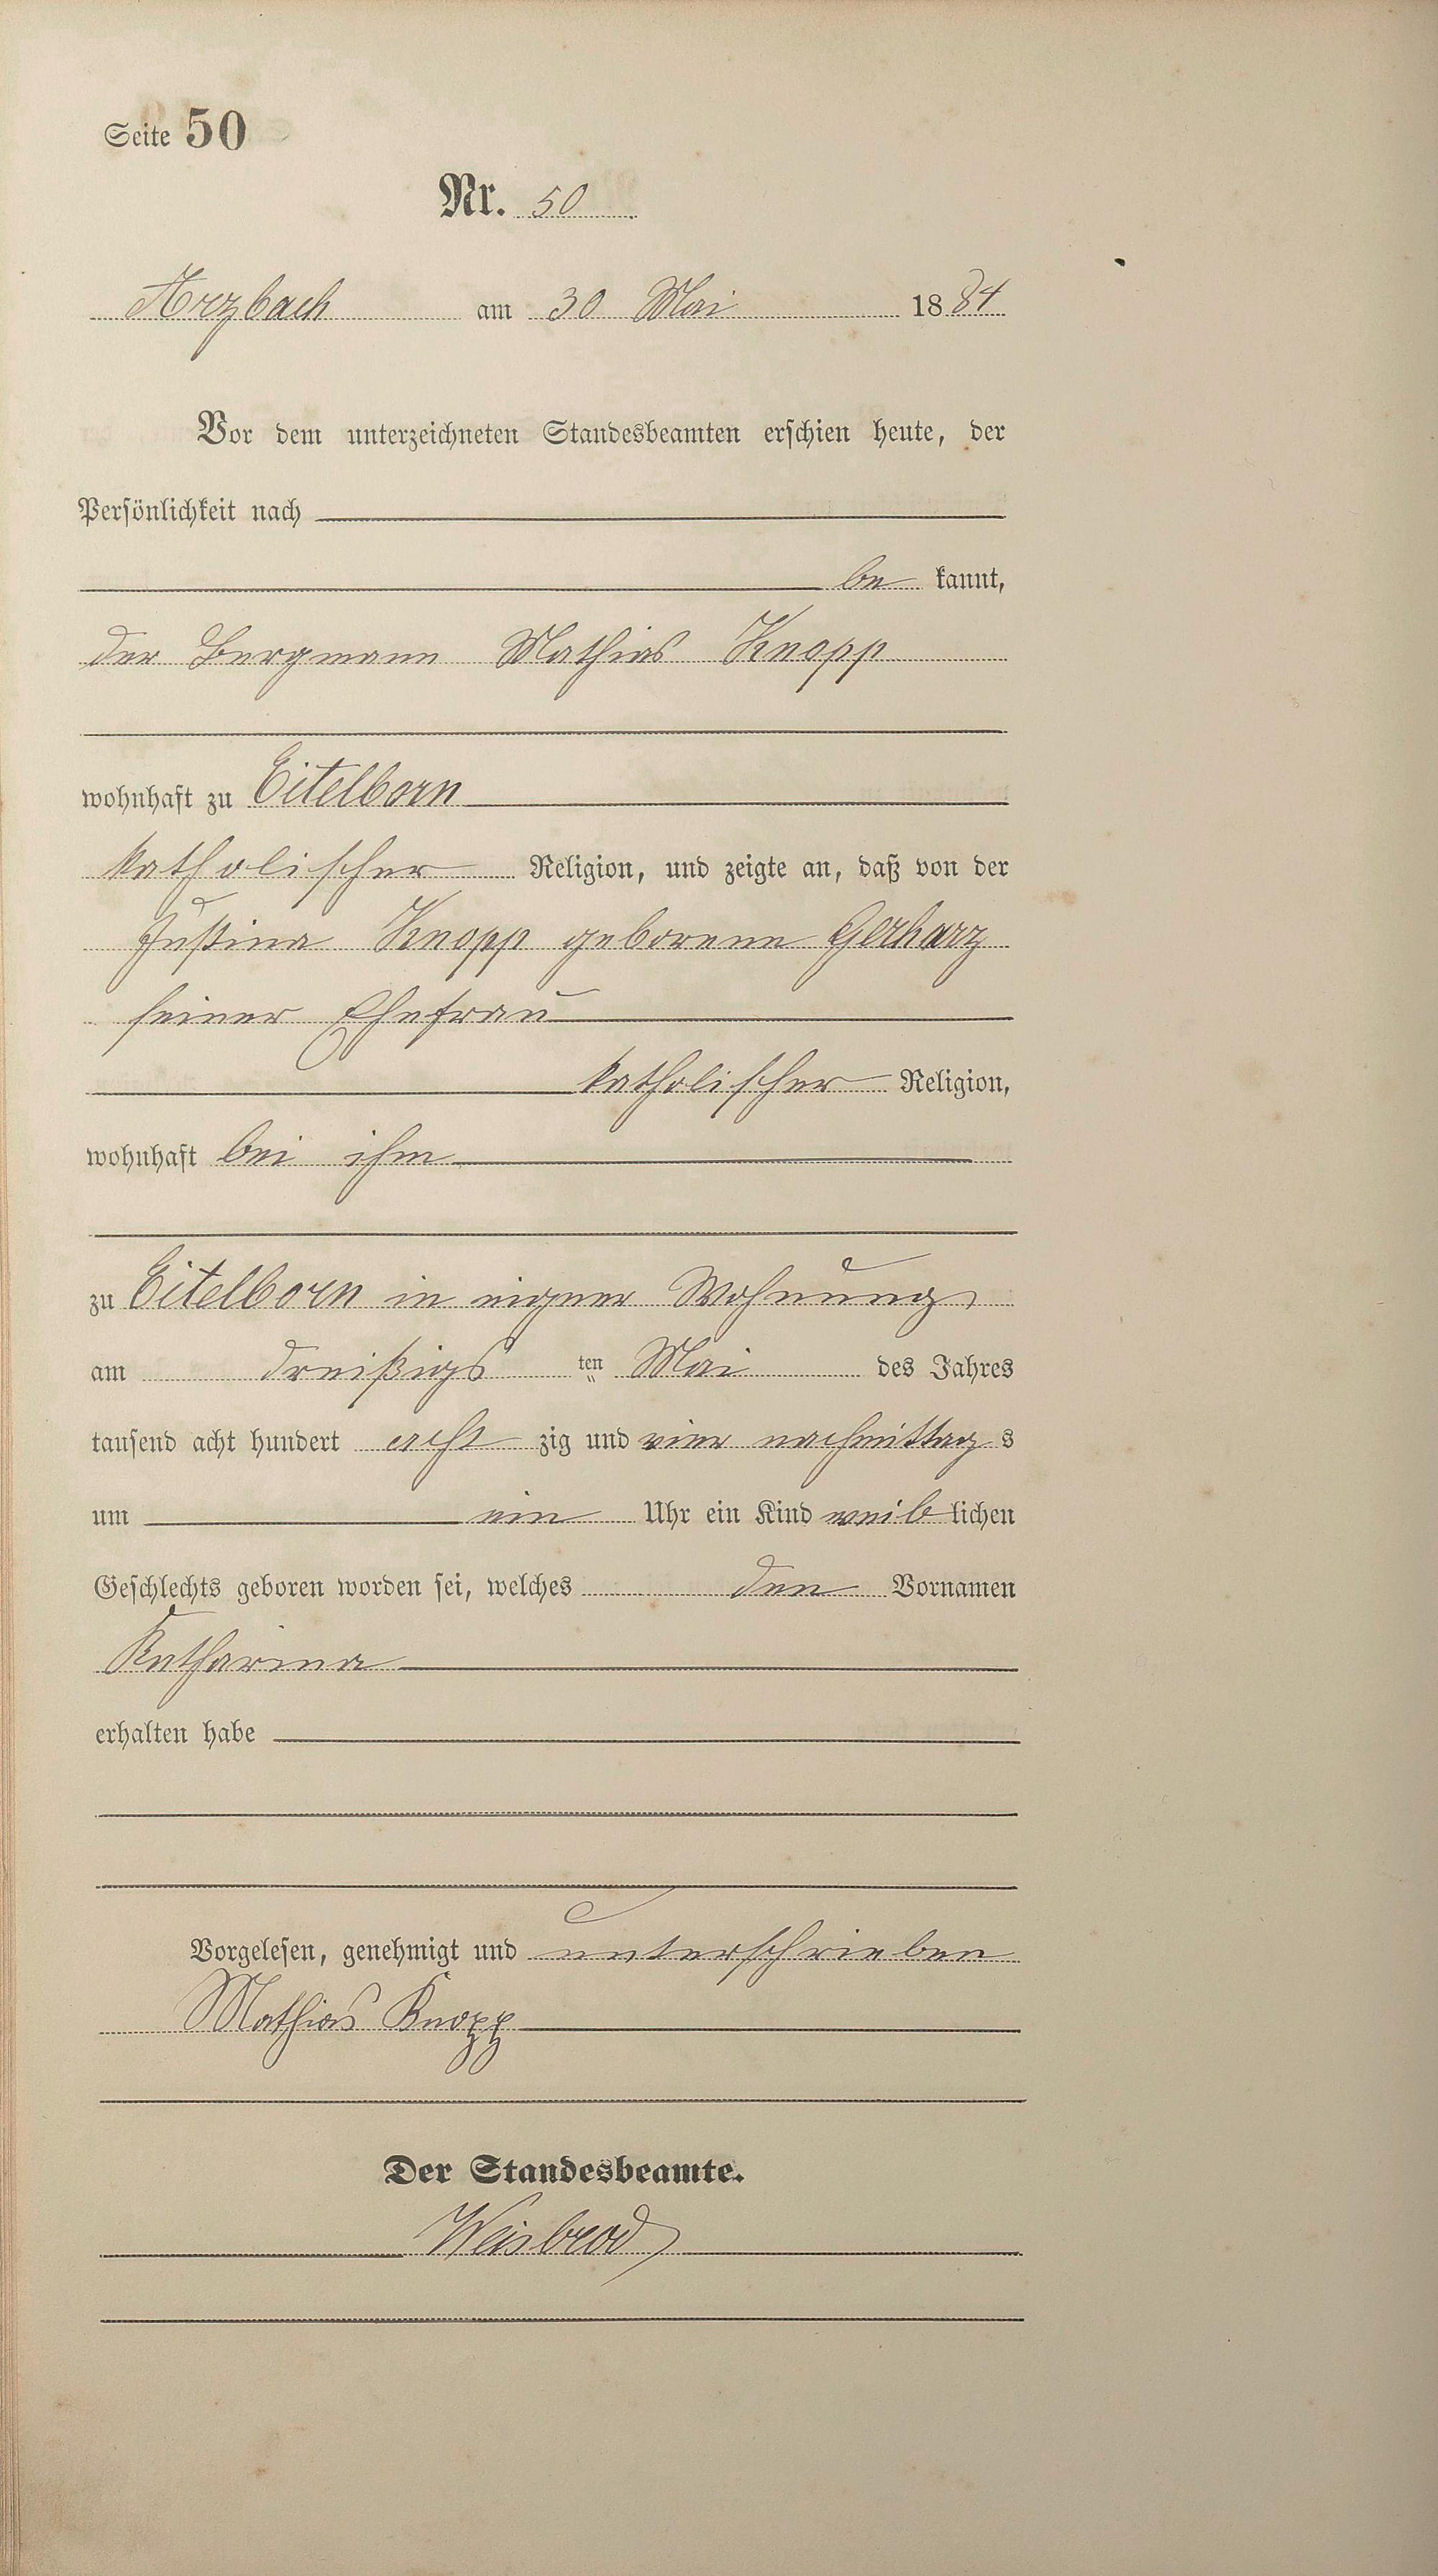 Seite 50
Nr. 50
Arzbach am 30 Mai 1884
Vor dem unterzeichneten Standesbeamten erschien heute, der
Persönlichkeit nach
be kannt,
der Bergmann Mathias Knopp
wohnhaft zu Eitelborn
katholischer Religion, und zeigte an, daß von der
Justina Knopp geborene Gerharz
seiner Ehefrau
katholischer Religion,
wohnhaft bei ihm
zu Eitelborn in eigner Wohnung
am dreißigs ten Mai des Jahres
tausend acht hundert acht zig und vier nachmittag s
um ein Uhr ein Kind weib lichen
Geschlechts geboren worden sei, welches den Vornamen
Katharina
erhalten habe
Vorgelesen, genehmigt und unterschrieben
Mathias Knopp
Der Standesbeamte.
Weisbrod